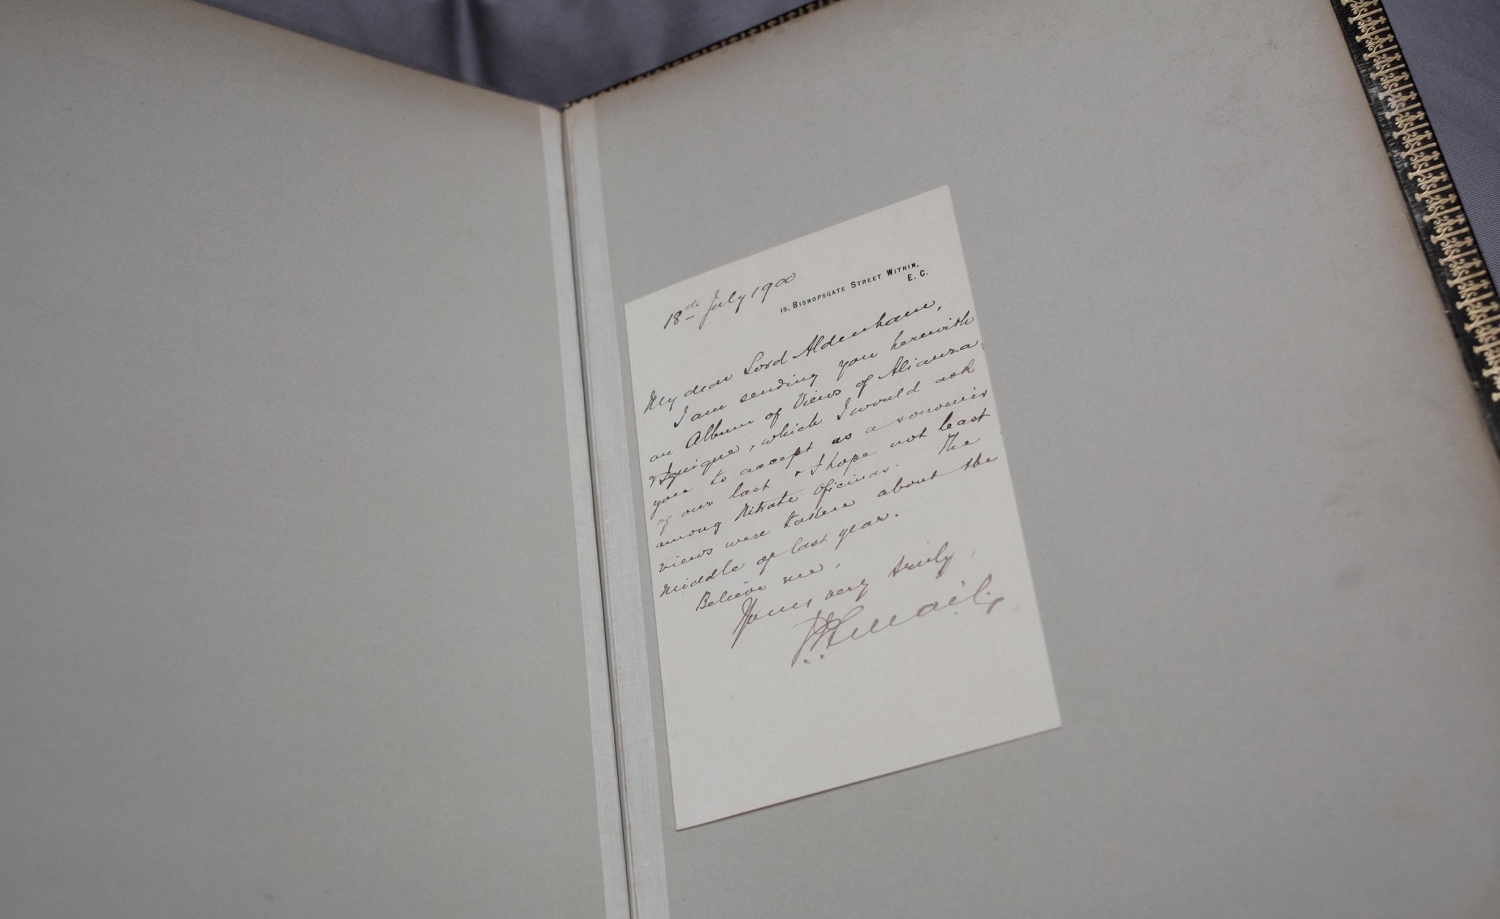 18th July 1900
15, Bishopsgate Street Within,
E.C.
My dear Lord Aldenham,
I am sending you herewith
an Album of Views of Alianza
& Iquique, which I would ask
you to accept as a souvenir
of our last & I hope not least
among Nitrate oficinas. The
views were taken about the
middle of last year.
Believe me,
Yours very truly